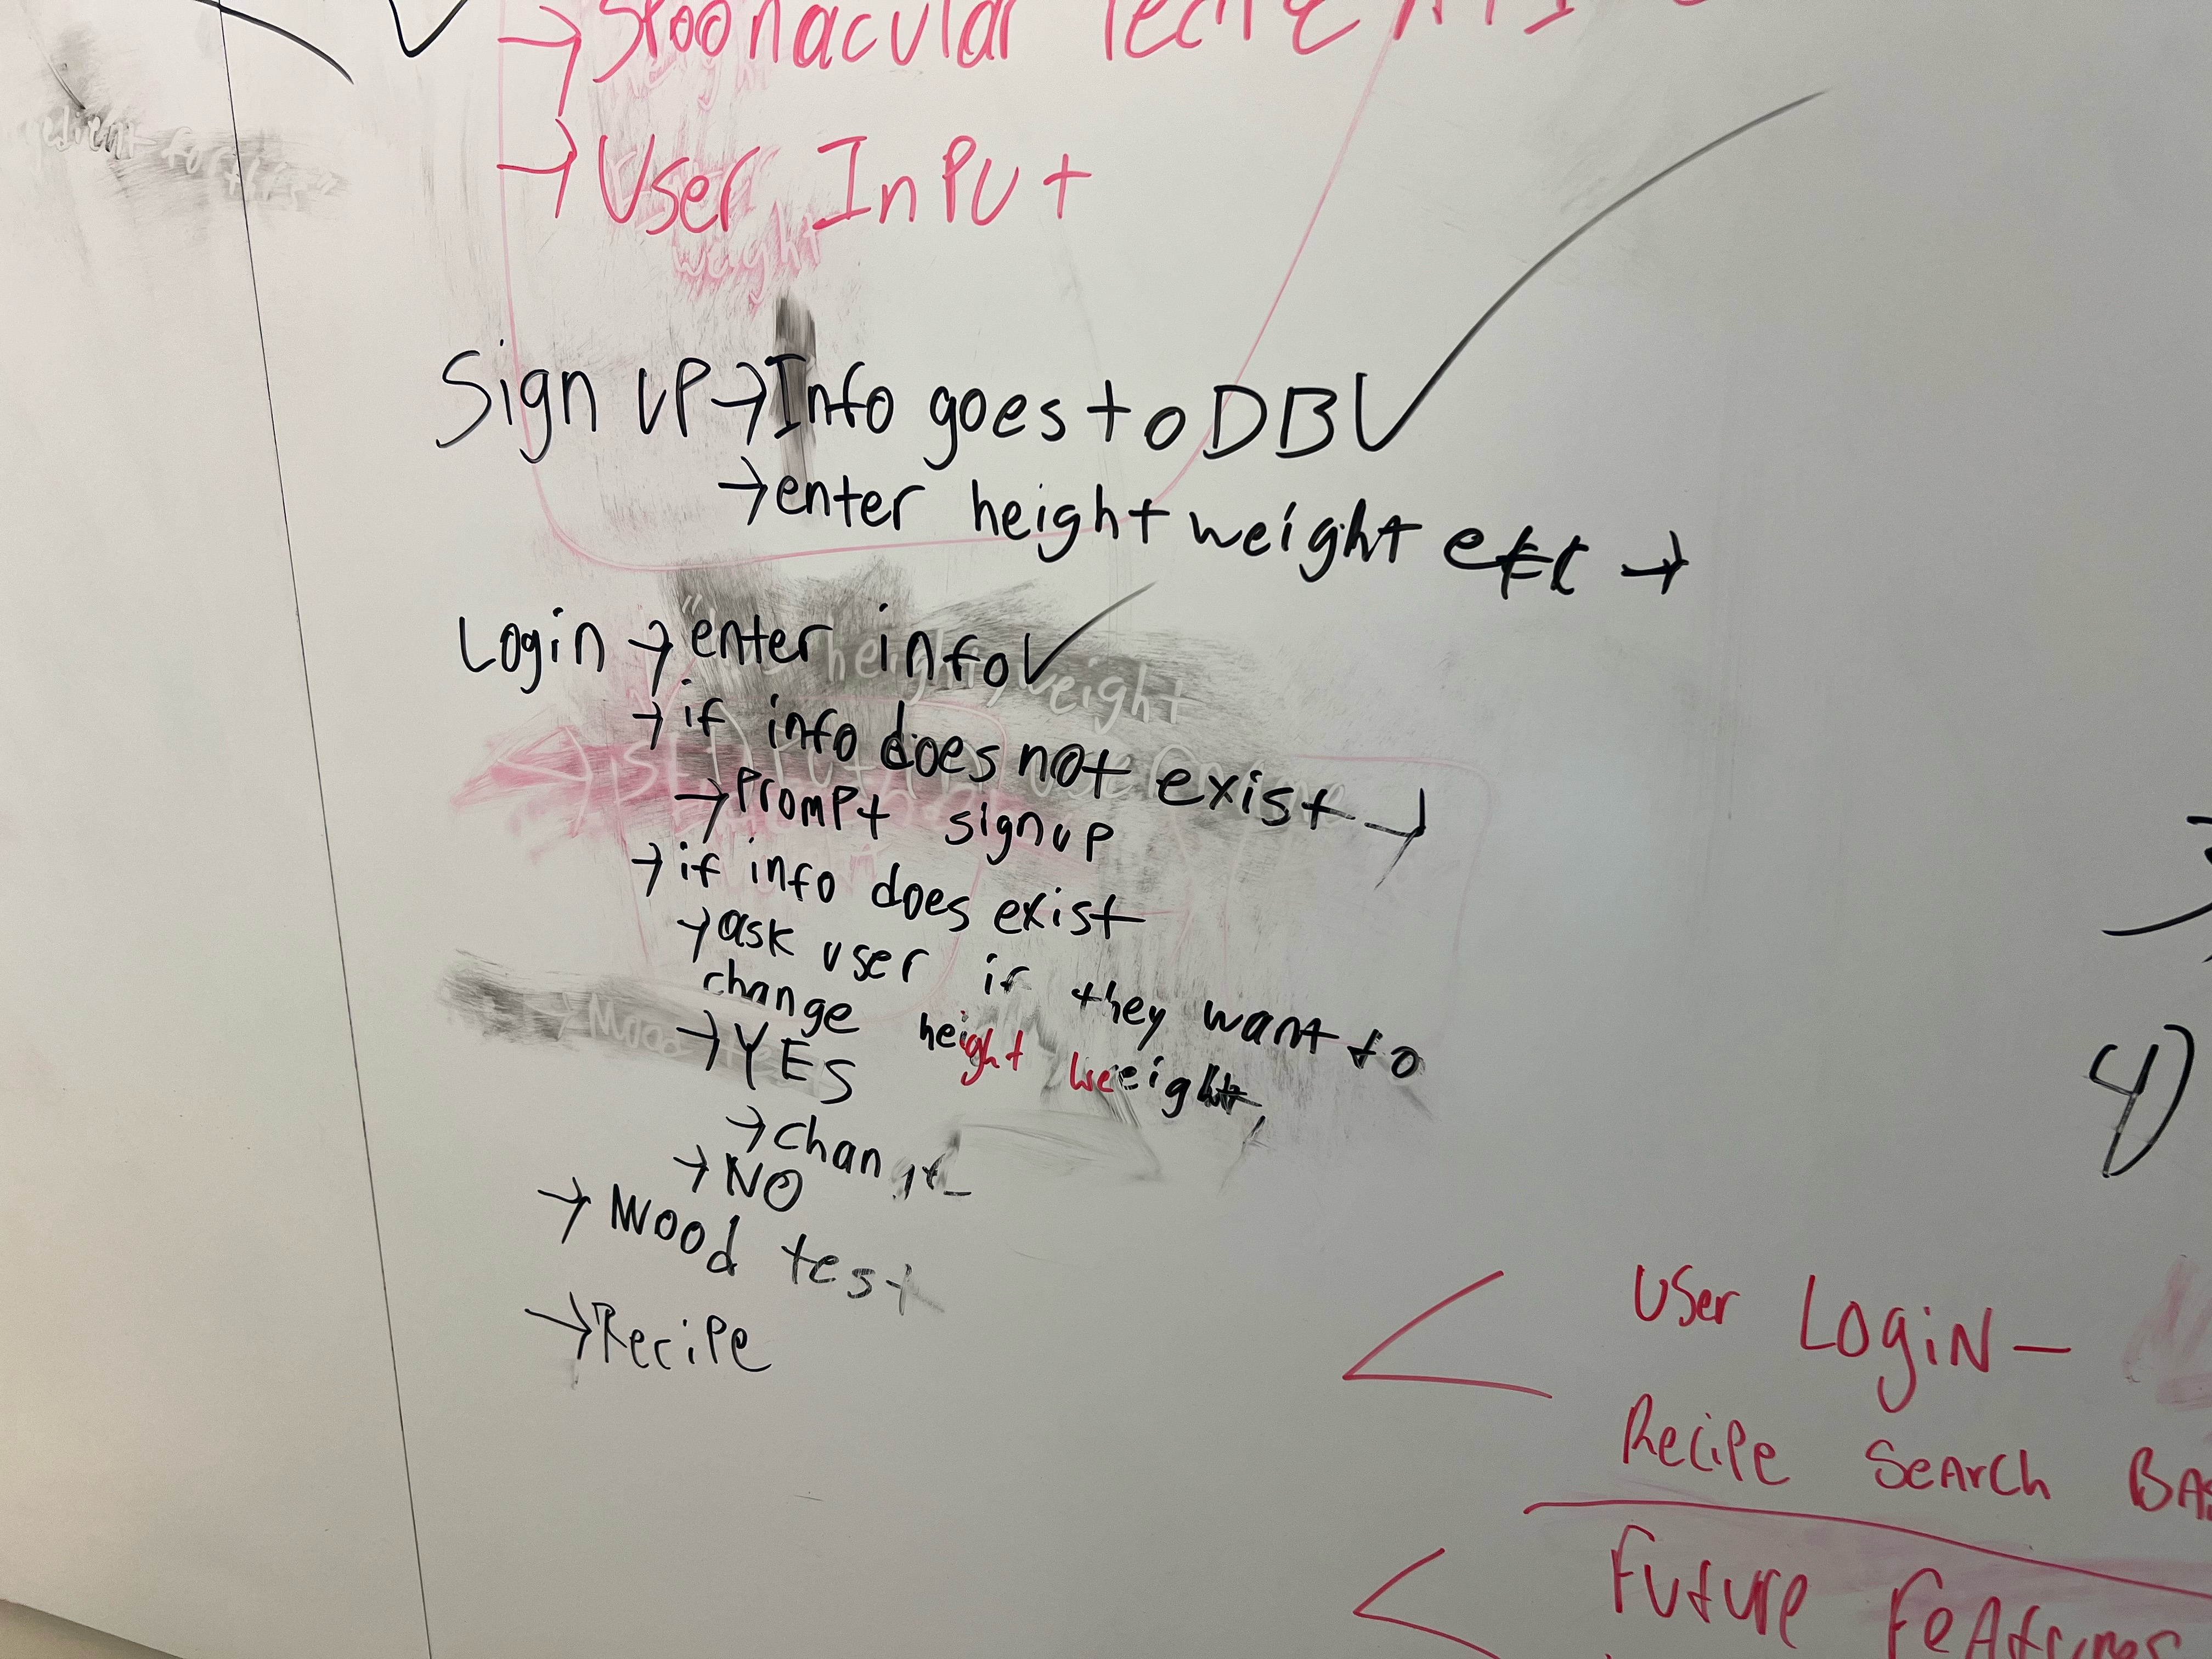 → Spoonacular recipe API
→ User InPut
Sign UP → Info goes to DB ✓
→ enter height weight etc →
Login → enter info ✓
→ if info does not exist →
→ Prompt signup
→ if info does exist
→ ask user if they want to
change height weight,
→ YES
→ change
→ NO
→ Mood test
→ Recipe
4)
User LOgiN —
Recipe SeArCh
Future FeAtures